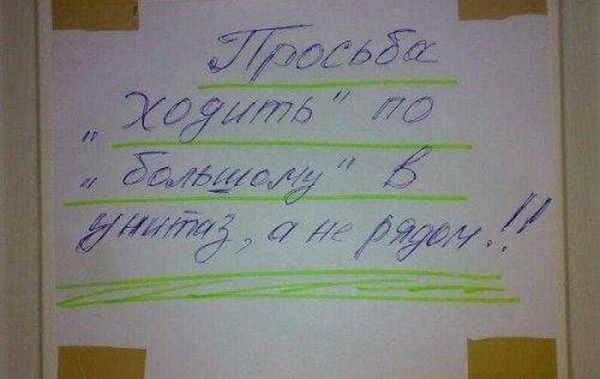 Просьба
„ходить" по
„большому" в
унитаз, а не рядом!!